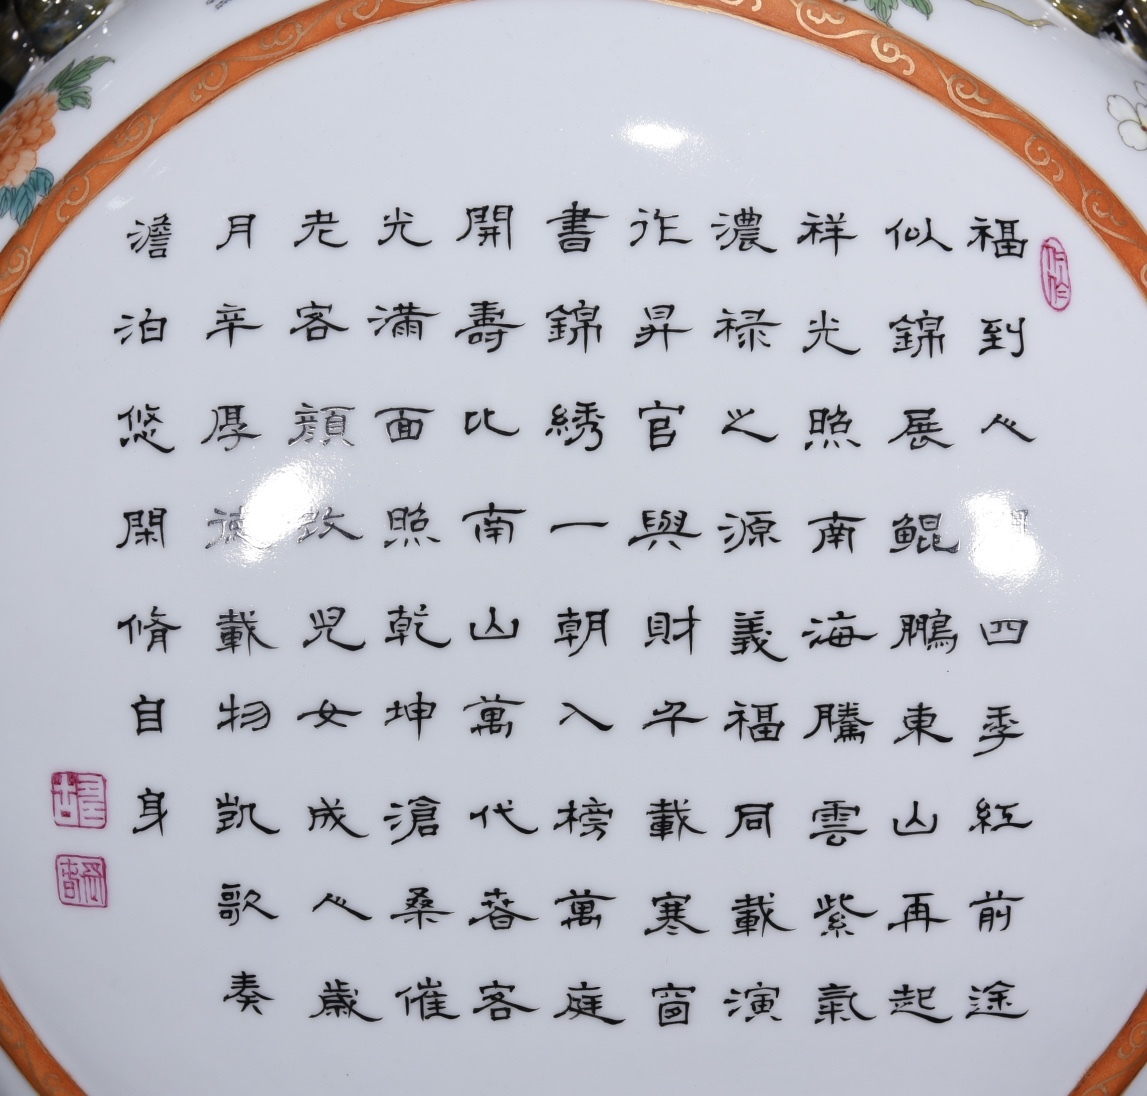 福到心四季紅前途
似錦展鯤鵬東山再起
祥光照南海騰雲紫氣
濃禄之源義福同載演
作昇官與財午載寒窗
書錦綉一朝入榜萬庭
開壽比南山萬代春客
光滿面照乾坤滄桑催
老客顔改兒女成心歲
月辛厚德載物凱歌奏
澹泊悠閑脩自身